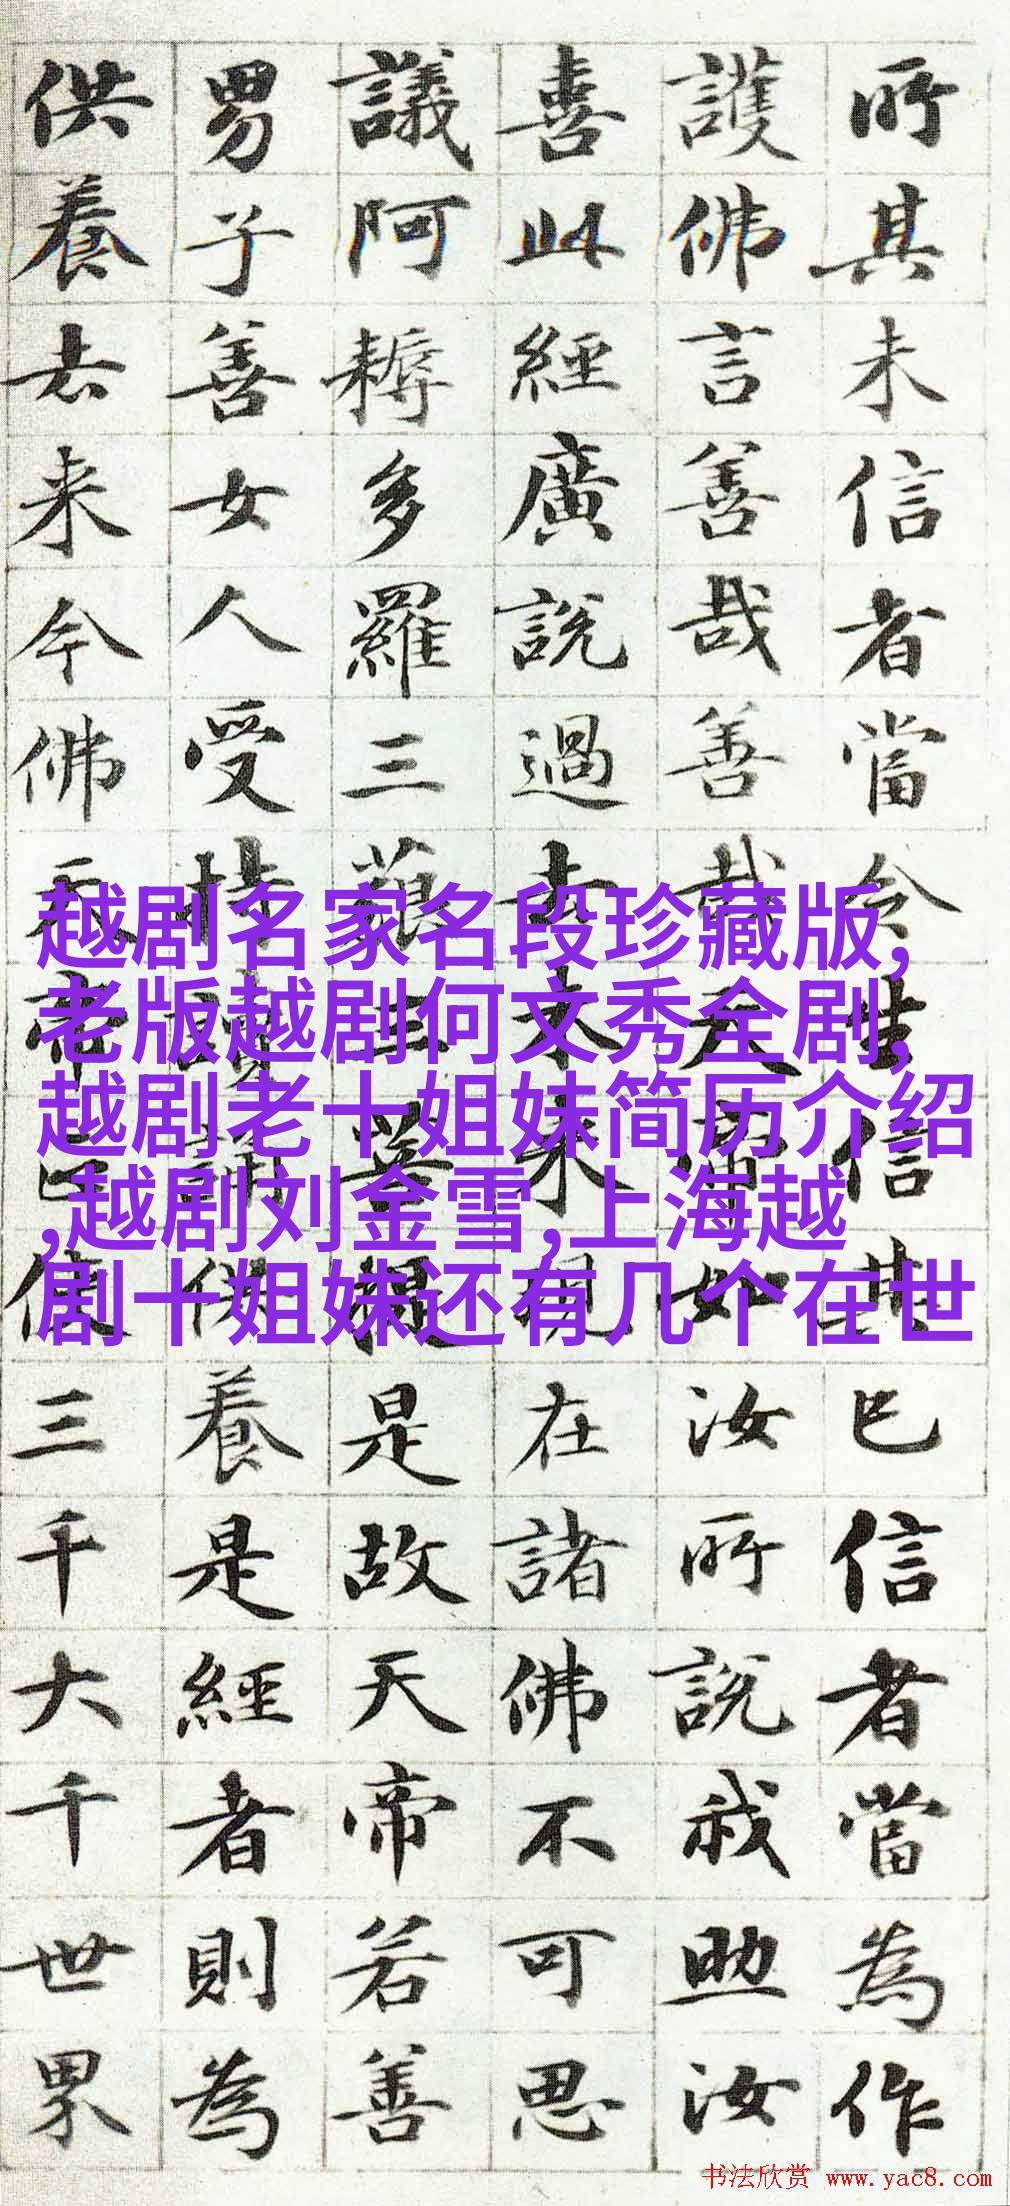 所其未信者當令生信其已信者當為作
護佛言善哉善哉天帝如汝所說我助汝
喜此經廣說過去未来現在諸佛不可思
議阿耨多羅三藐三菩提是故天帝若善
男子善女人受持讀誦供養是經者則為
供養去来今佛天帝正使三千大千世界
越剧名家名段珍藏版,
老版越剧何文秀全剧,
越剧老十姐妹简历介绍
,越剧刘金雪,上海越
剧十姐妹还有几个在世
书法欣赏 www.yac8.com